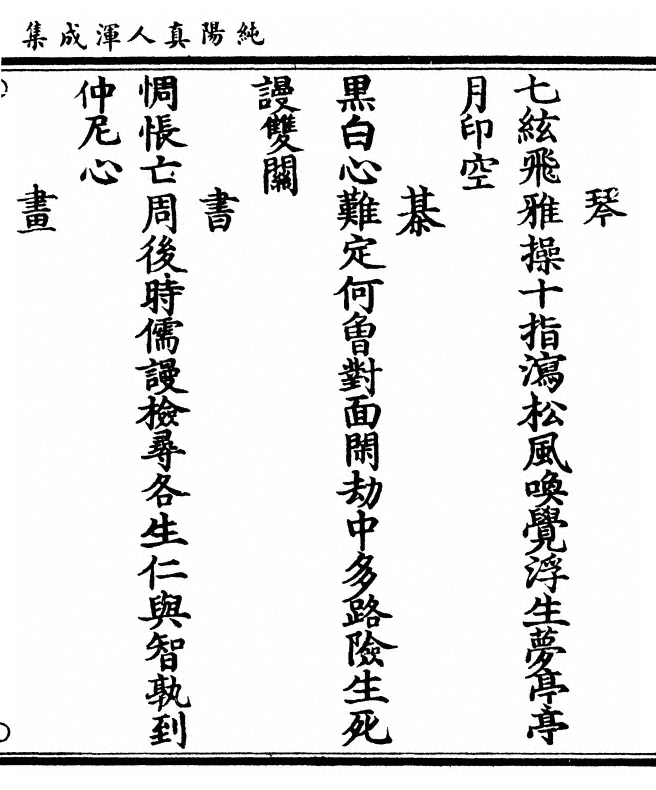 純陽真人渾成集
琴
七絃飛雅操十指瀉松風喚覺浮生夢亭亭
月印空
棊
黒白心難定何魯對面閑劫中多路險生死
謾雙關
書
惆悵亡周後時儒謾檢尋各生仁與智孰到
仲尼心
畫